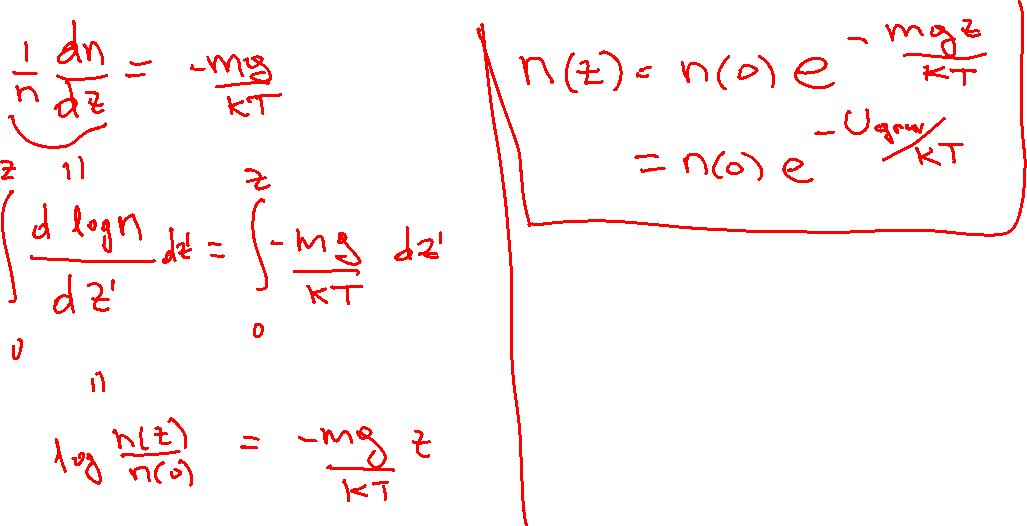 1/n dn/dz = -mg/kT
∫₀ᶻ d log n/dz' dz' = ∫₀ᶻ -mg/kT dz'
log n(z)/n(0) = -mg/kT z
n(z) = n(0) e^(-mgz/kT)
= n(0) e^(-U_grav/kT)